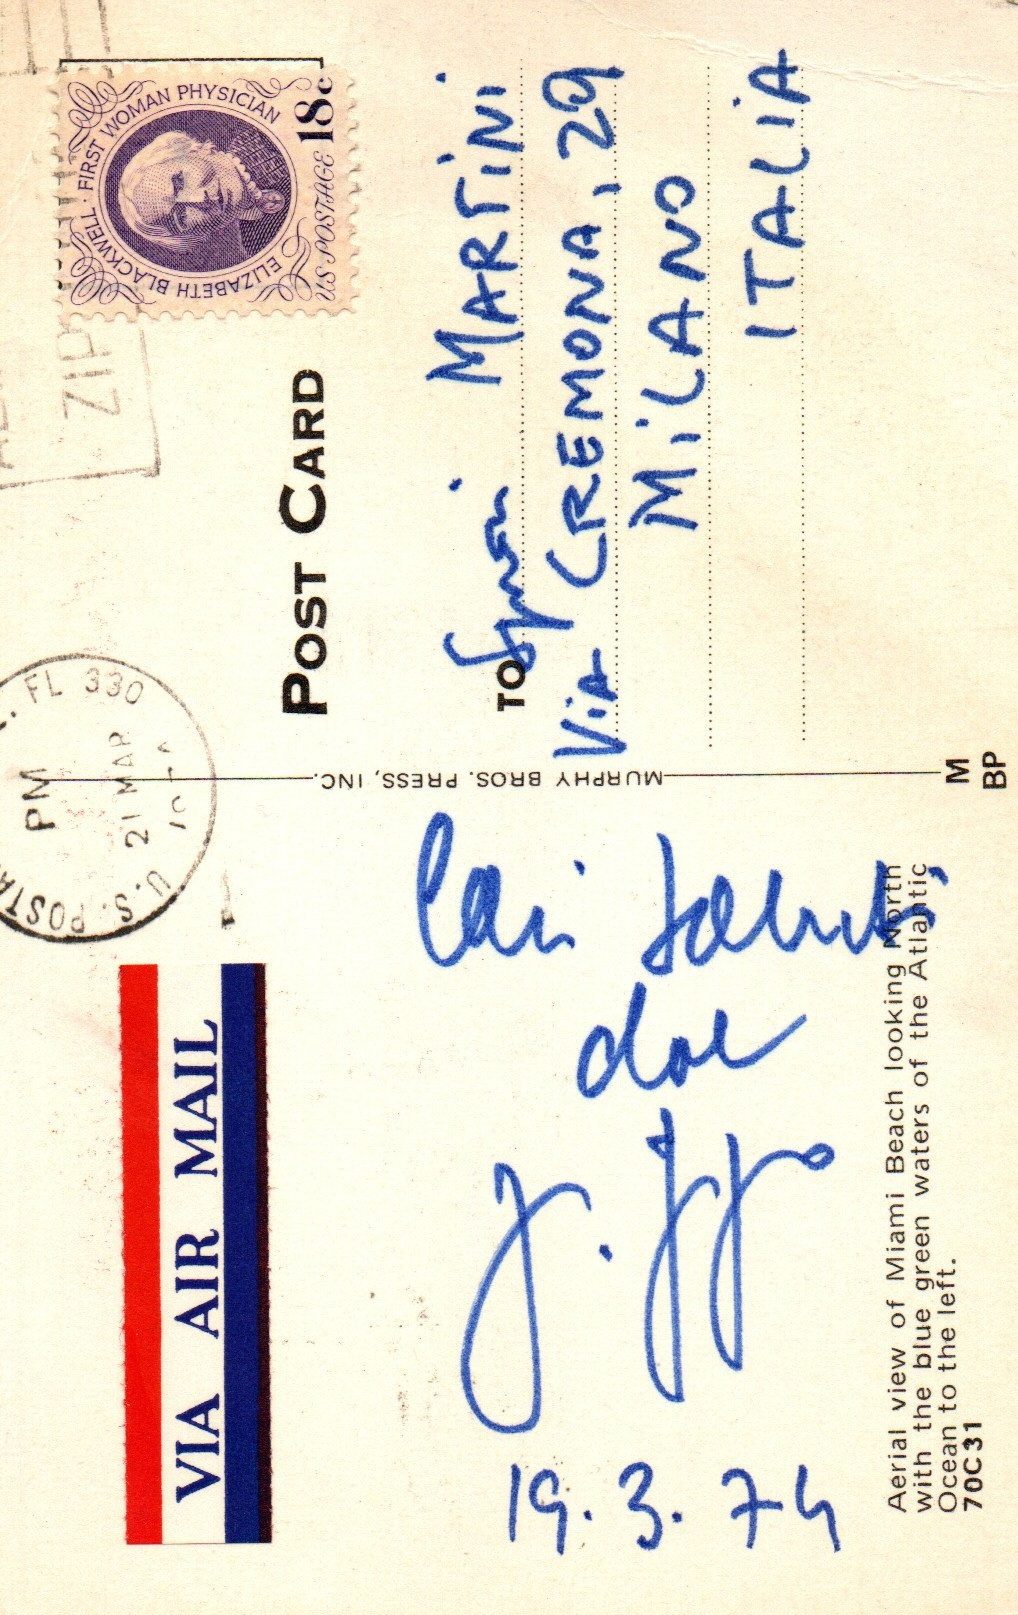 VIA AIR MAIL
U.S. POSTA
FL 330
PM
21 MAR
ZIP
ELIZABETH BLACKWELL · FIRST WOMAN PHYSICIAN
US POSTAGE 18c
POST CARD
Cari saluti,
dal
19.3.74
TO
MARTINI
Via CREMONA, 29
MiLANO
ITALiA
MURPHY BROS. PRESS, INC.
Aerial view of Miami Beach looking North
with the blue green waters of the Atlantic
Ocean to the left.
70C31
M
BP